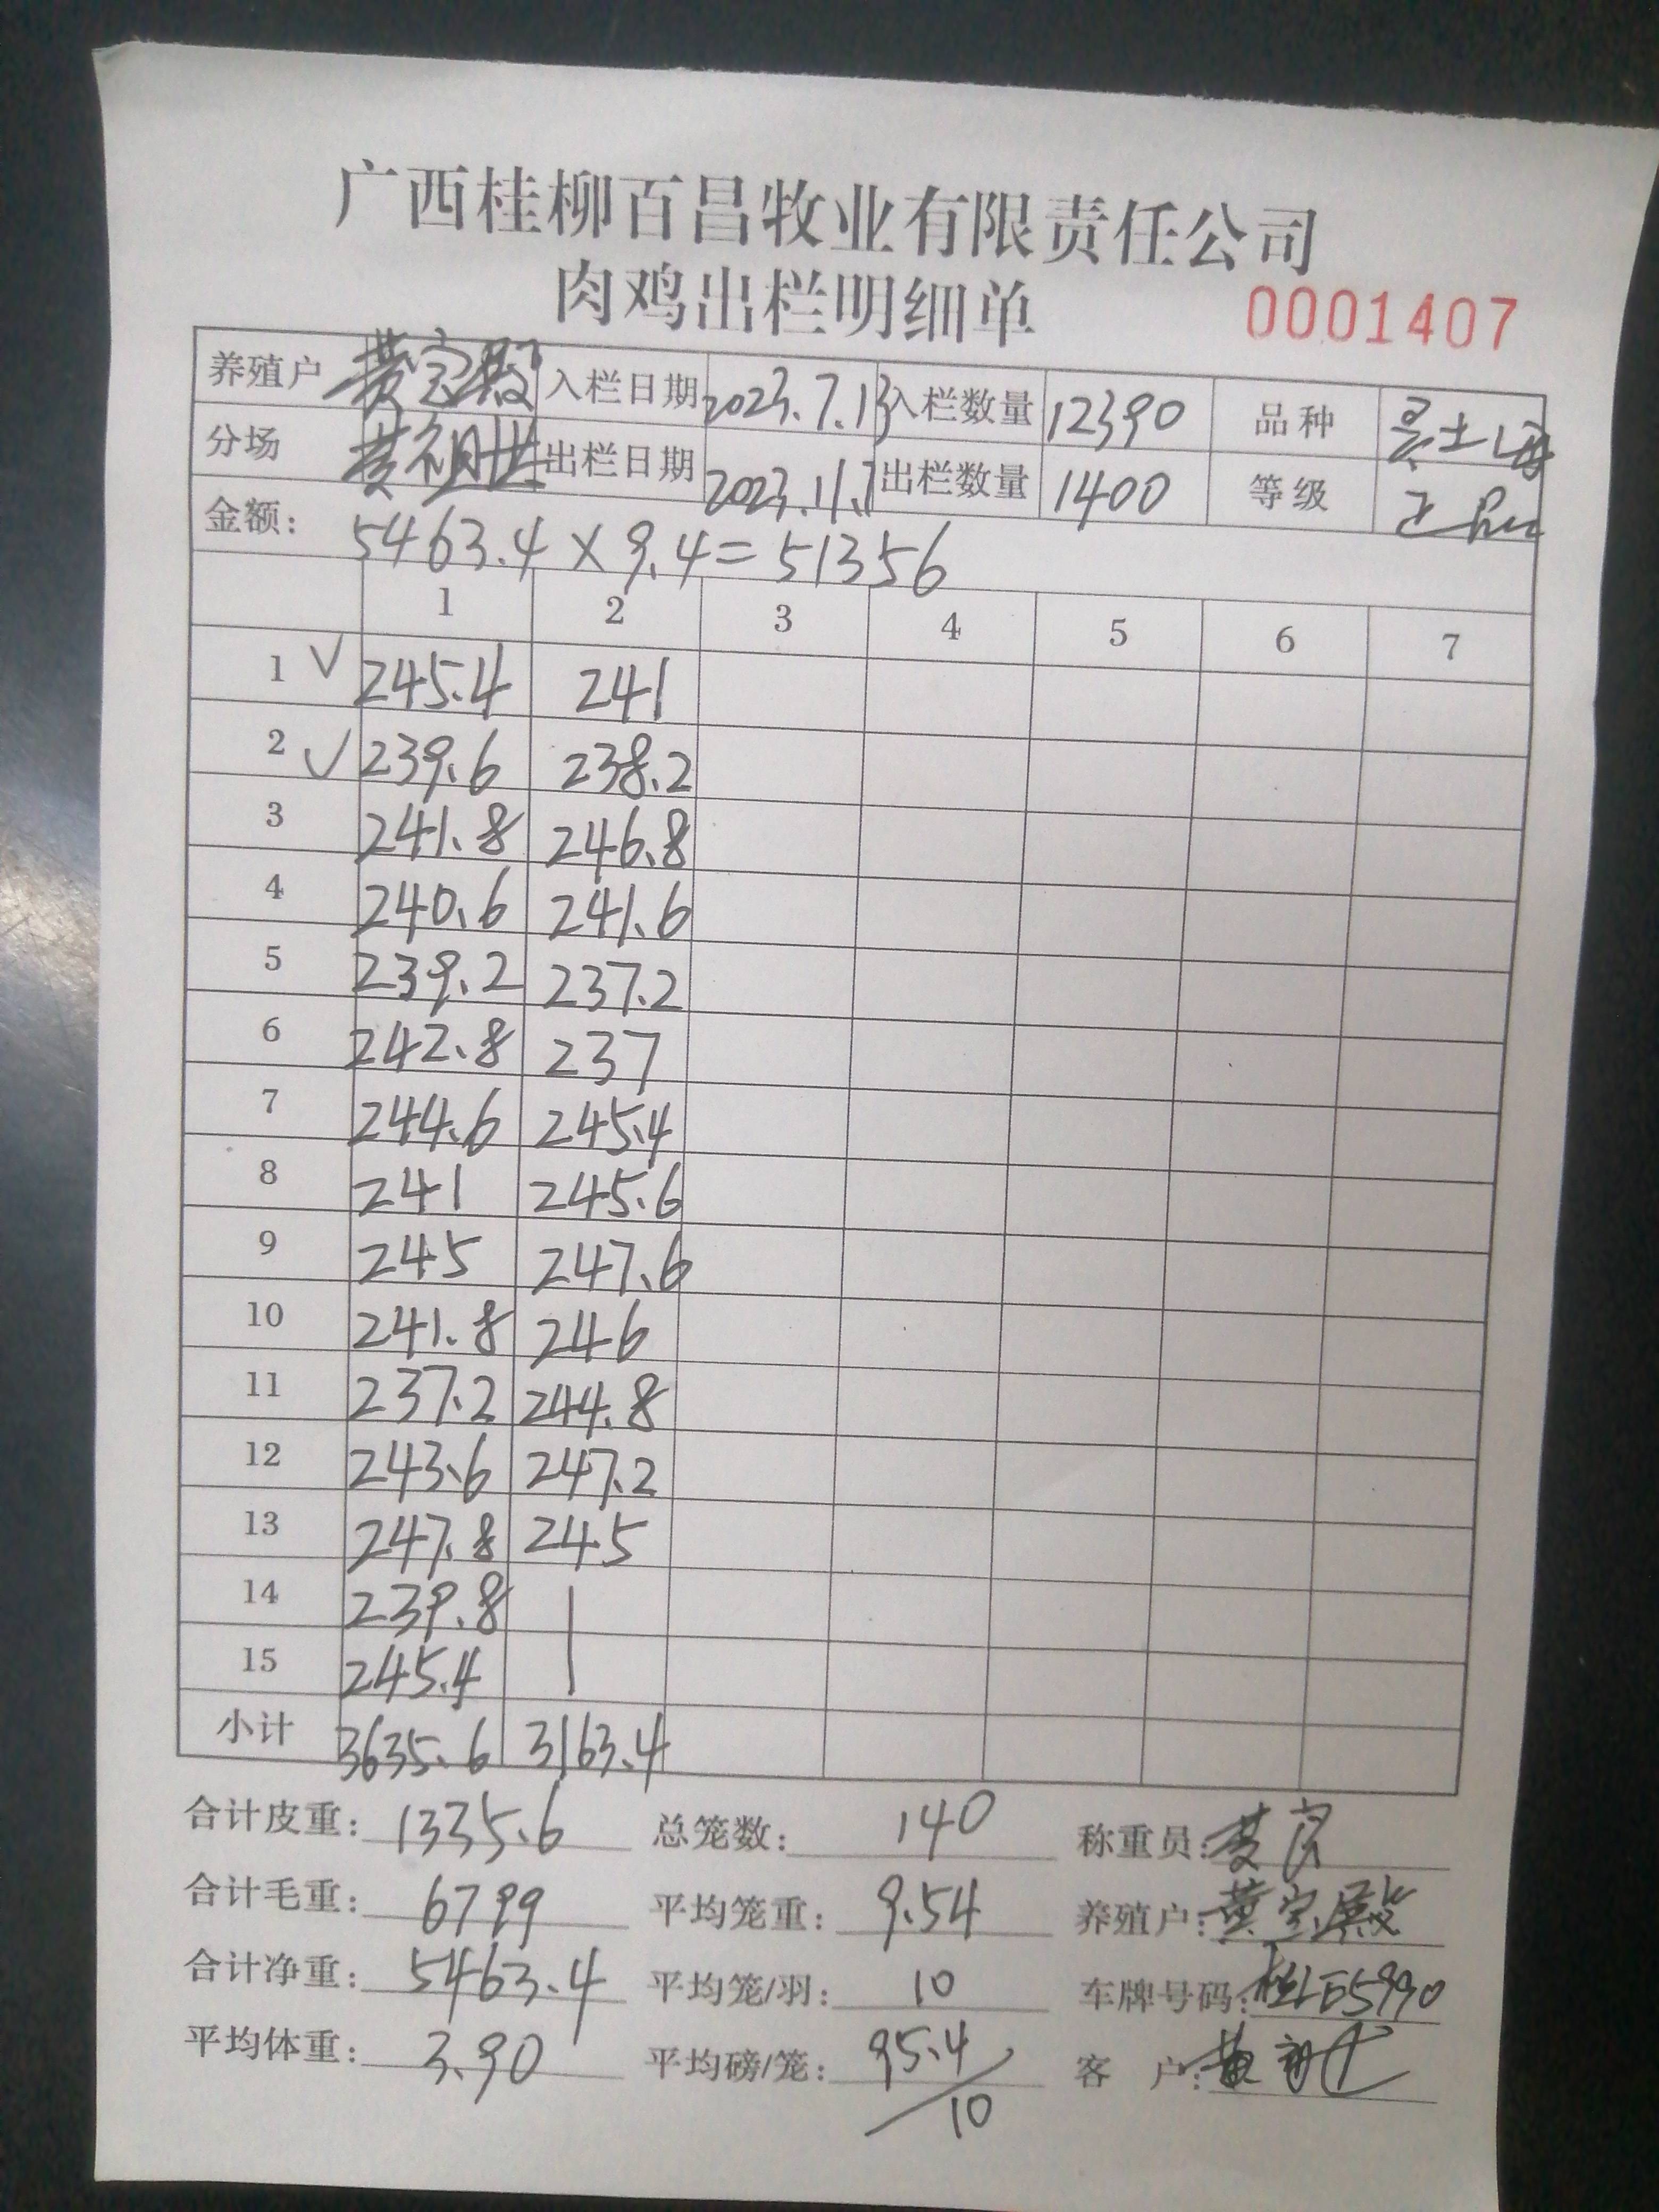 广西桂柳百昌牧业有限责任公司
肉鸡出栏明细单 0001407
养殖户 黄宝殿 入栏日期 2023.7.13 入栏数量 12390 品种 土
分场 黄祖世 出栏日期 2023.11.7 出栏数量 1400 等级 正品
金额: 5463.4 × 9.4 = 51356
1 2 3 4 5 6 7
1 √ 245.4 241
2 √ 239.6 238.2
3 241.8 246.8
4 240.6 241.6
5 239.2 237.2
6 242.8 237
7 244.6 245.4
8 241 245.6
9 245 247.6
10 241.8 246
11 237.2 244.8
12 243.6 247.2
13 247.8 245
14 239.8
15 245.4
小计 3635.6 3163.4
合计皮重: 1335.6 总笼数: 140 称重员: 黄
合计毛重: 6799 平均笼重: 9.54 养殖户: 黄宝殿
合计净重: 5463.4 平均笼/羽: 10 车牌号码: 桂LE5990
平均体重: 3.90 平均磅/笼: 95.4/10 客 户: 黄